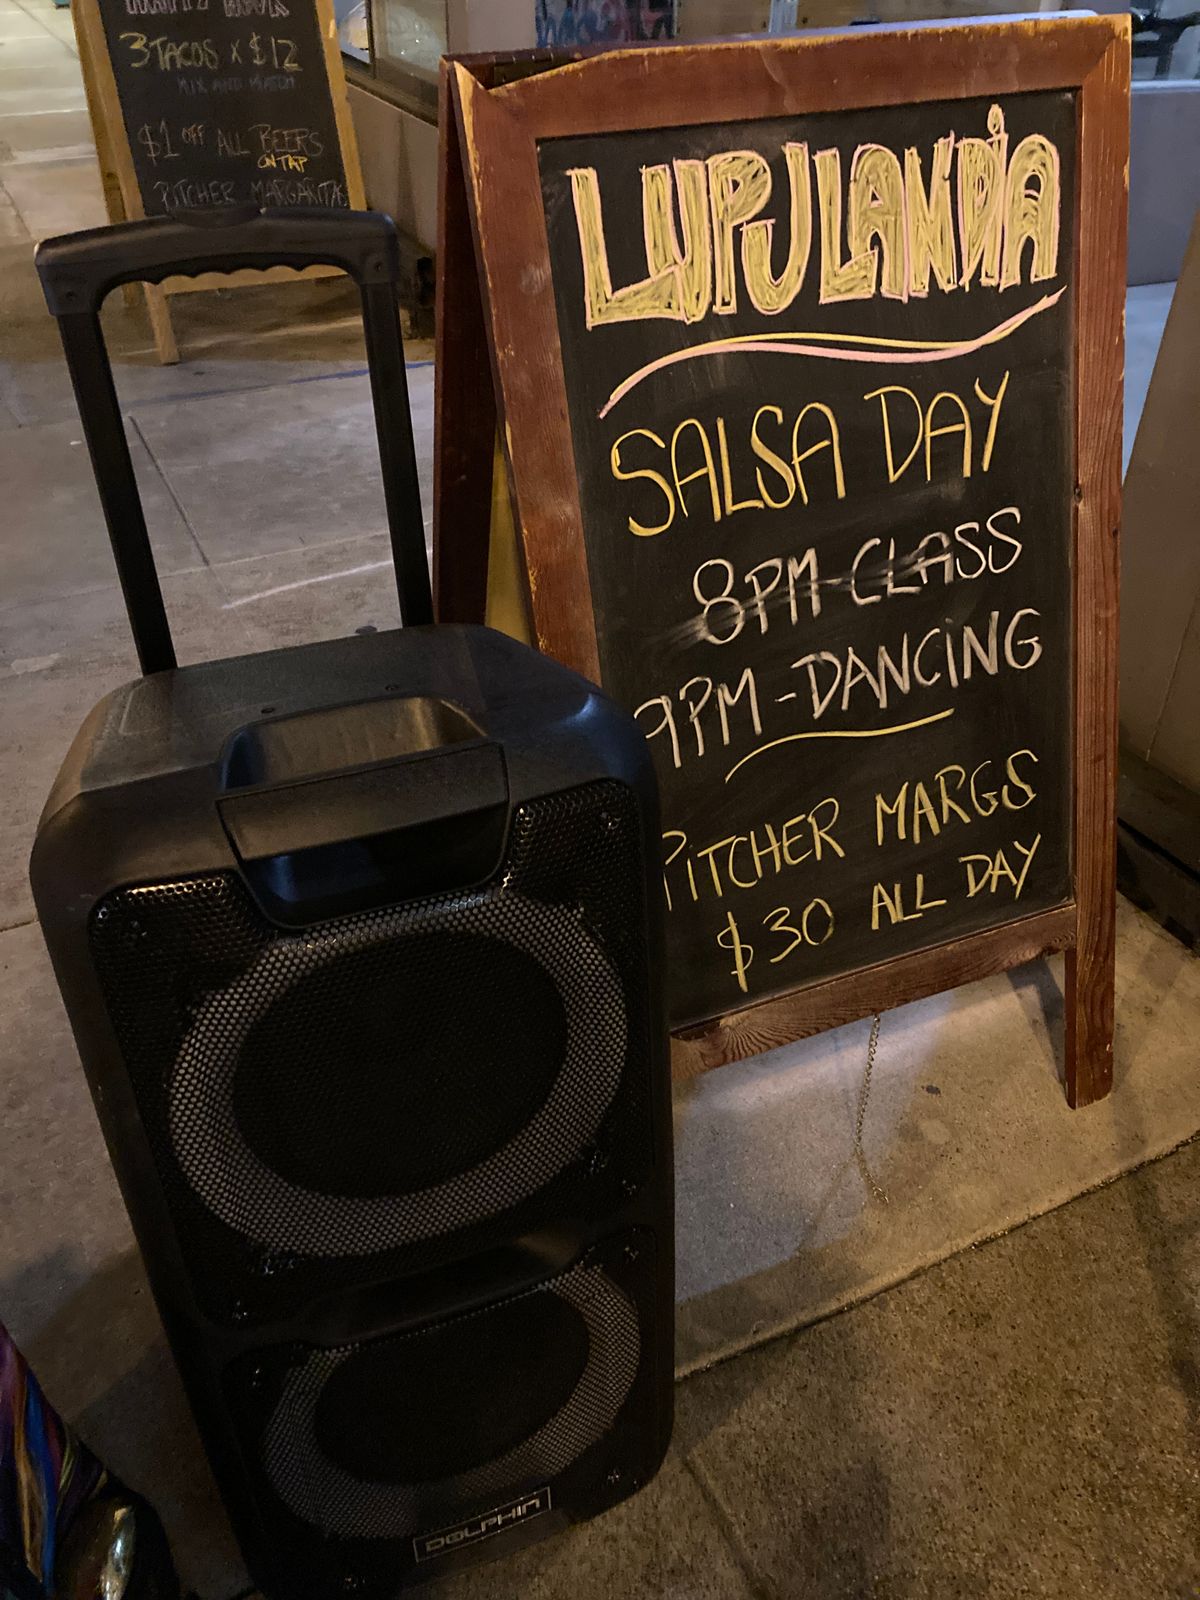 3 TACOS X $12
MIX AND MATCH
$1 OFF ALL BEERS
ON TAP
PITCHER MARGARITAS
LUPULANDIA
SALSA DAY
8PM-CLASS
9PM-DANCING
PITCHER MARGS
$30 ALL DAY
DOLPHIN